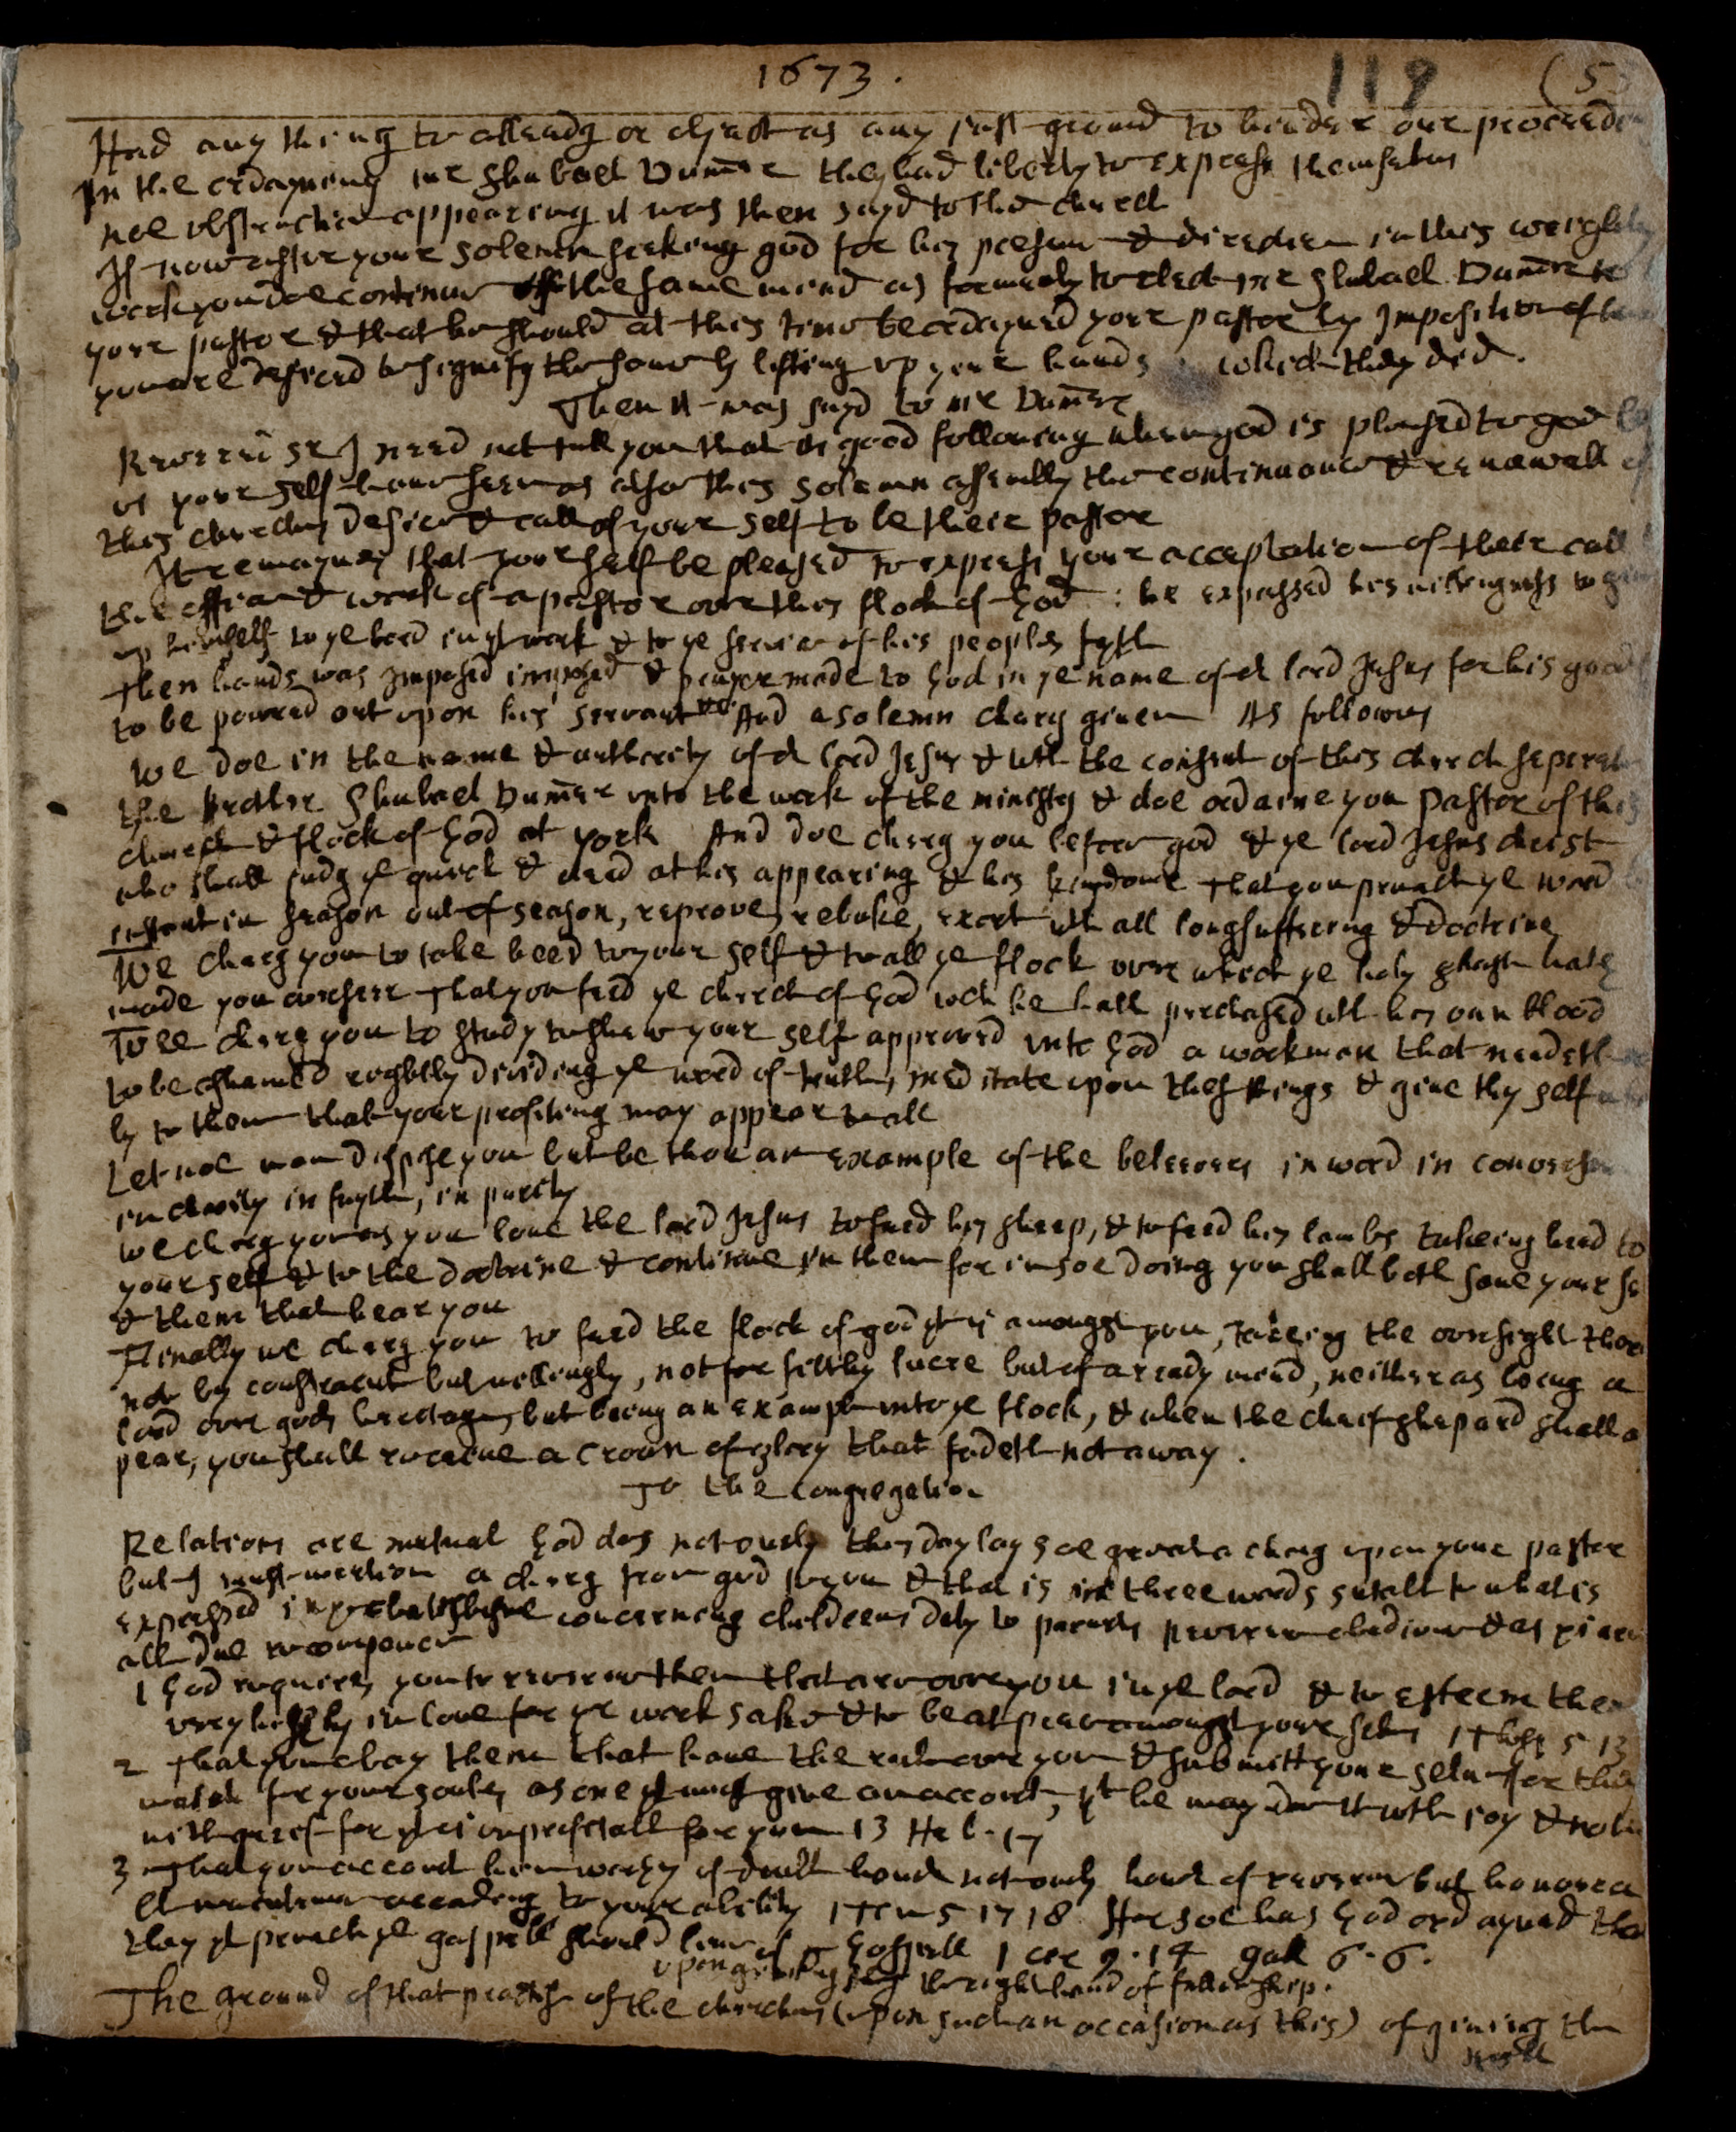 1673.
119 (5
Had any thing to alleadg or object as any just ground to hinder our proceed
In the ordayneing mr Shubael Dumer they had liberty to express themselves
noe obstruction appearing it was then sayd to the church
If now after your solemn seeking god for his presenc & direction in this weighty
work you doe continue of the same mind as formerly to elect mr Shubael Dumer to
your pastor & that he should at this time be ordayned your pastor by Imposition of
you are desired to signify the same by lifting up your hands which they did.
Then it was sayd to mr Dumer
Reverend sr I need not tell you that is good following when god is pleased to goe
yourself have seen as also this solemn assembly the continuance & renewall of
this churches desire & call of your self to be their pastor
It remaynes that yourself be pleased to express your acceptation of their call
the office & work of a pastor over this flock of God: he expressed his willingness to
up himself to ye lord in yt work & to ye service of his peoples fayth
Then hands was Imposed imposed & prayer made to God in ye name of ye lord Jesus for his good
to be powred out upon his servant &c And a solemn charg given As followes
We doe in the name & authority of ye lord Jesus & wth the consent of this church seperate
the Brother Shubael Dumer unto the work of the ministry & doe ordaine you Pastor of this
church & flock of God at york And doe charg you before god & ye lord Jesus christ
who shall judg ye quick & dead at his appearing & his kingdome that you preach ye word
instant in season out of season, reprove, rebuke, exort wth all longsuffering & doctrine
We charg you to take heed to your self & to all ye flock over which ye holy ghost hath
made you overseer That you feed ye church of God wch he hath purchased wth his own blood
Wee charg you to study to shew your self approved unto God a workman that needeth
to be ashamed rightly deviding ye word of truth, meditate upon these things & give thy self
ly to them that your profiting may appear to all
Let noe man dispise you but be thou an example of the beleevers in word in convers
in charity in fayth, in purity
we charg you as you love the lord Jesus to feed his sheep, & to feed his lambs takeing heed to
your self & to the doctrine & continue in them for in soe doing you shall both save your
& them that hear you
Finally we charg you to feed the flock of god yt is amongst you, takeing the oversight
not by constraint but willingly, not for filthy lucre but of a ready mind, neither as being a
lord over gods heritage, but being an example unto ye flock, & when the cheif shepard shall a
pear, you shall receive a crown of glory that fadeth not away.
To the congregation
Relations are mutual God does not only this day lay soe great a charg upon your pastor
but I must mention a charg from god to you & that is in three words sutable to what is
expressed in ye concerning childrens duty to parents Reverence obedience &
all due recompence
1 God requires you to reverence them that are over you in ye lord & to esteem them
very highly in love for ye work sake & to be at peace amongst your selves 1 Thes 5 13
2 That you obay them that have the rule over you & submitt your selves for they
watch for your soules, as one yt must give an account, yt he may doe it with joy & not
with greif for yt is unprofitall for you 13 Heb. 17
3 That you account him worthy of double honor not only honor of reverence but honor a
of maintenance according to your ability 1 Tim 5 17 18. For soe has God ordayned
they yt preach ye gospell should live of ye Gospell 1 cor 9.14 gal 6.6.
upon giveing the right hand of fellowship.
The ground of that practise of the churches (upon such an occasion as this) of giveing the